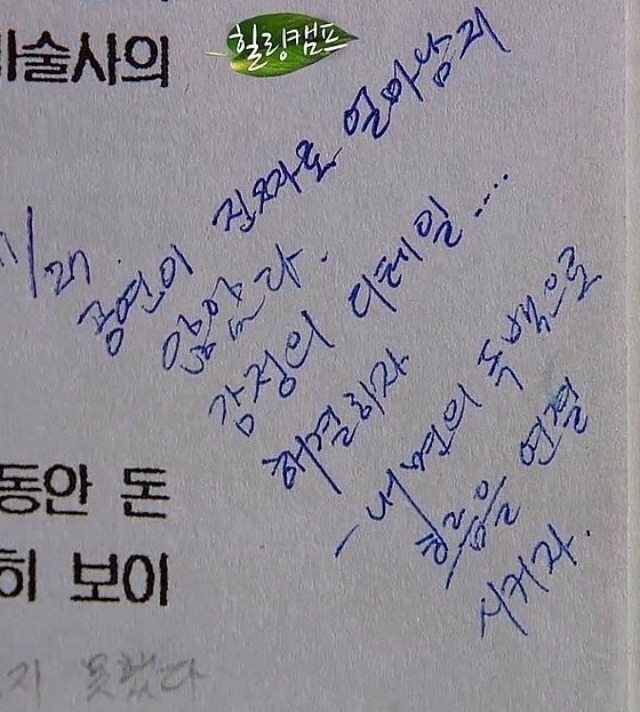 힐링캠프
술사의
공연이 진짜로 얼마남지
않았다.
감정의 디테일....
해결하자
- 내면의 독백으로
흐름을 연결
시키자.
동안 돈
히 보이
지 못했다